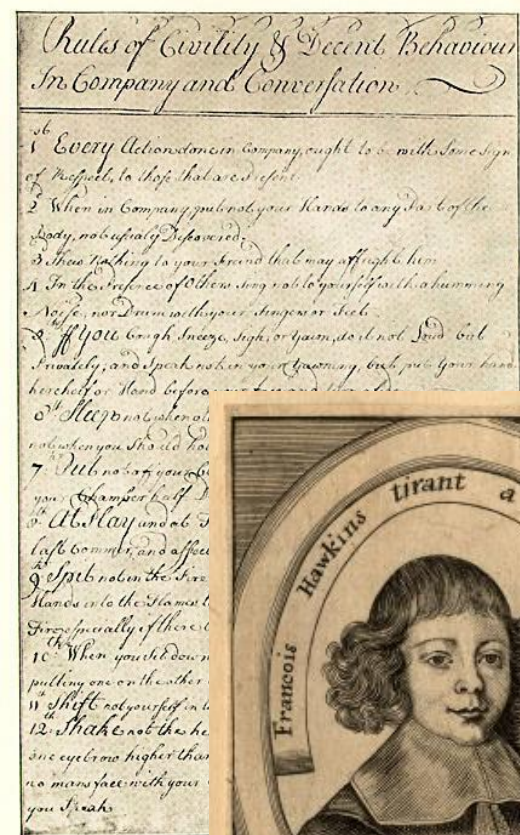 Rules of Civility & Decent Behaviour
In Company and Conversation
1st Every Action done in Company, ought to be with Some Sign
of Respect, to those that are Present.
2d When in Company, put not your Hands to any Part of the
Body, not usualy Discovered.
3 Shew Nothing to your Freind that may affright him
4 In the Presence of Others Sing not to yourself with a humming
Noise, nor Drum with your Fingers or Feet
5th If You Cough, Sneeze, Sigh, or Yawn, do it not Loud but
Privately; and Speak not in your Yawning, but put Your hand
kercheif or Hand before your face and turn aside
6th Sleep not when ot
not when you Should hol
7th Put not off your
your Chamber half D
8th At Play and at F
last Commer, and affect
9th Spit not in the Fire
Hands into the Flames t
Fire especially if there
10th When you Sit down
putting one on the other
11th Shift not yourself in
12th Shake not the he
one eyebrow higher than
no mans face with your
you Speak
Francois Hawkins tirant a